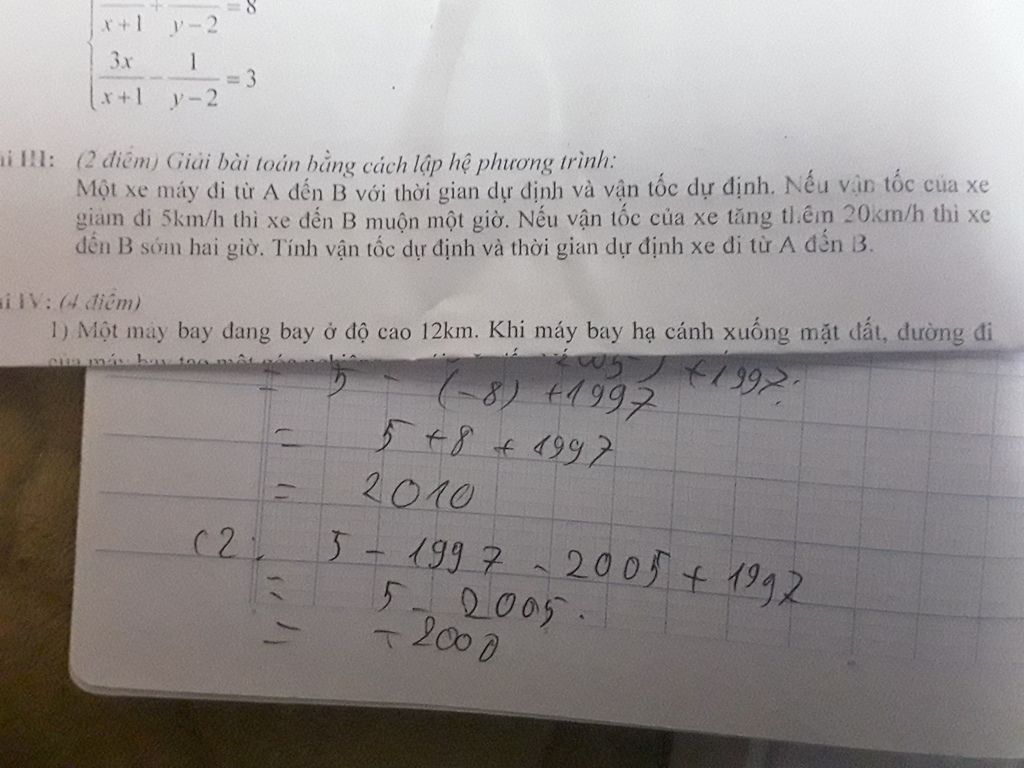 x+1 + y−2 = 8
3x/x+1 − 1/y−2 = 3
i III: (2 điểm) Giải bài toán bằng cách lập hệ phương trình:
Một xe máy đi từ A đến B với thời gian dự định và vận tốc dự định. Nếu vận tốc của xe
giảm đi 5km/h thì xe đến B muộn một giờ. Nếu vận tốc của xe tăng thêm 20km/h thì xe
đến B sớm hai giờ. Tính vận tốc dự định và thời gian dự định xe đi từ A đến B.
i IV: (4 điểm)
1) Một máy bay đang bay ở độ cao 12km. Khi máy bay hạ cánh xuống mặt đất, đường đi
của máy bay tạo một góc
) + 1997.
= 5 - (-8) + 1997
= 5 + 8 + 1997
= 2010
C2: 5 - 1997 - 2005 + 1997
= 5 - 2005.
= -2000